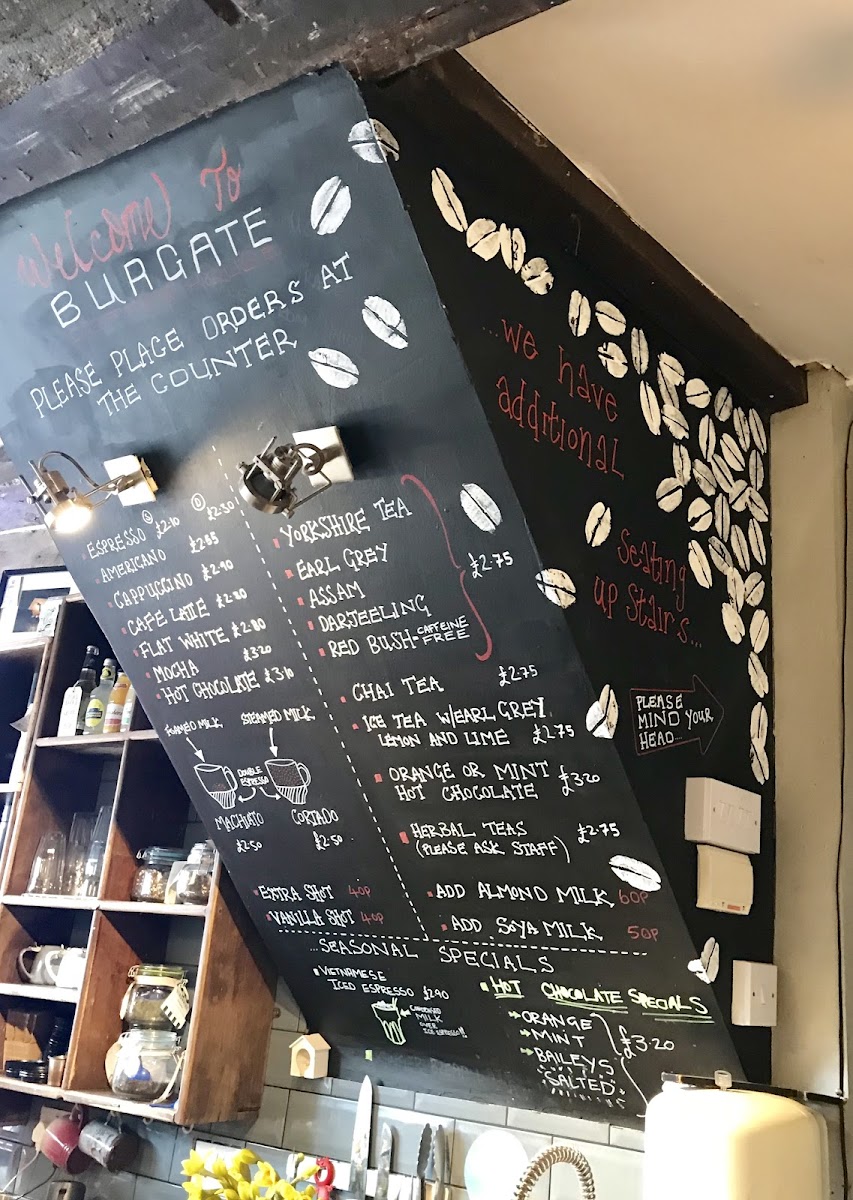 Welcome To
BURGATE
PLEASE PLACE ORDERS AT
THE COUNTER
Ⓢ Ⓓ
ESPRESSO £2.10 £2.50
AMERICANO £2.55
CAPPUCCINO £2.90
CAFE LATTE £2.80
FLAT WHITE £2.80
MOCHA £3.20
HOT CHOCOLATE £3.10
FOAMED MILK STEAMED MILK
DOUBLE
ESPRESSO
MACHIATO CORTADO
£2.50 £2.50
EXTRA SHOT 40P
VANILLA SHOT 40P
YORKSHIRE TEA
EARL GREY
ASSAM
DARJEELING
RED BUSH - CAFFEINE
FREE
£2.75
CHAI TEA £2.75
ICE TEA W/EARL GREY
LEMON AND LIME £2.75
ORANGE OR MINT
HOT CHOCOLATE £3.20
HERBAL TEAS £2.75
(PLEASE ASK STAFF)
ADD ALMOND MILK 60P
ADD SOYA MILK 50P
...SEASONAL SPECIALS
VIETNAMESE
ICED ESPRESSO £2.90
CONDENSED
MILK
OVER
ICE ESPRESSO!!
HOT CHOCOLATE SPECIALS
ORANGE
MINT
BAILEYS
SALTED
£3.20
...we have
additional
seating
up stairs...
PLEASE
MIND YOUR
HEAD...